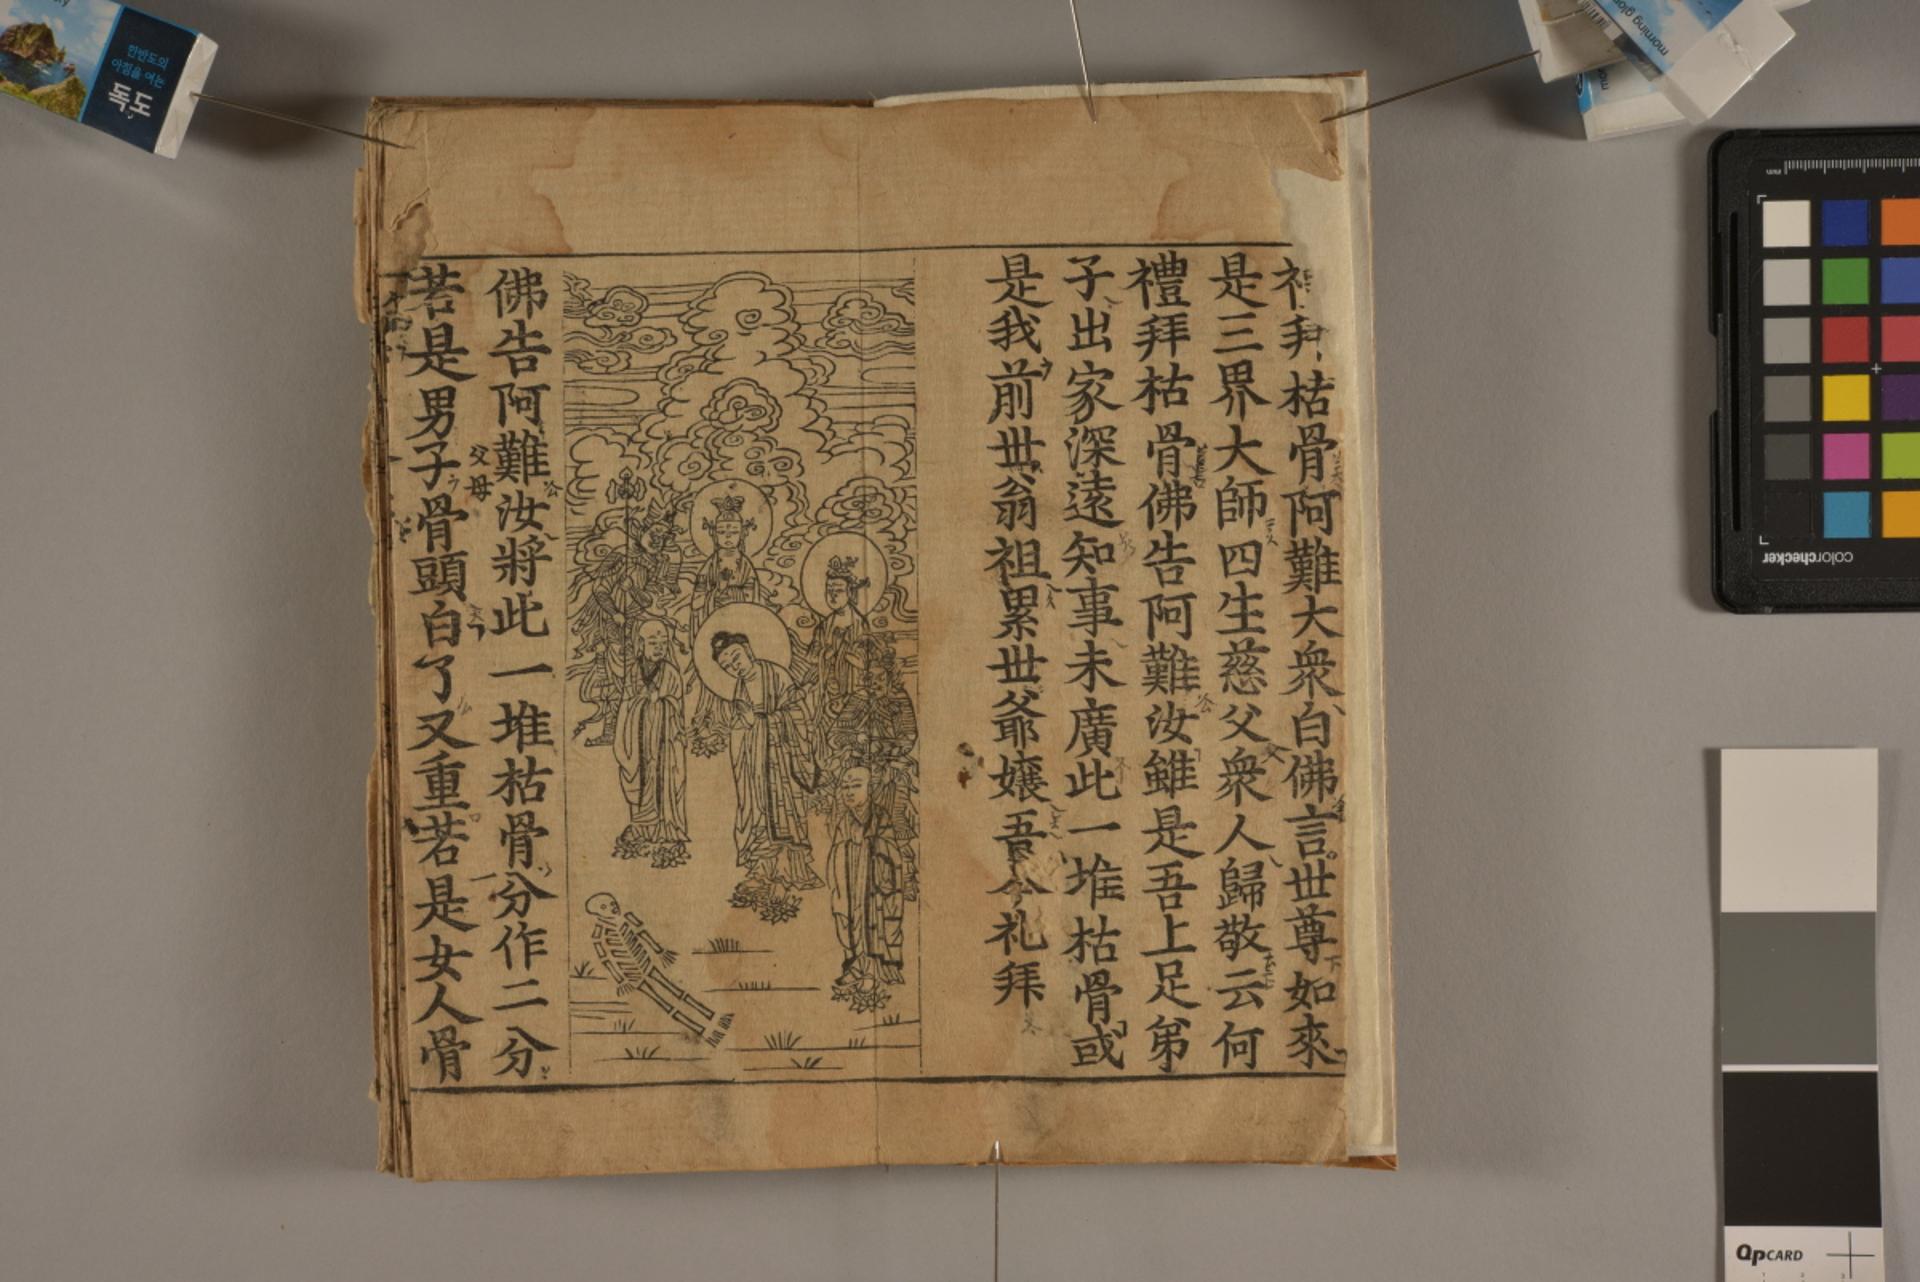 拜枯骨阿難大衆白佛言世尊如來
是三界大師四生慈父衆人歸敬云何
禮拜枯骨佛告阿難汝雖是吾上足弟
子出家深遠知事未廣此一堆枯骨或
是我前世翁祖累世爺孃吾今礼拜
佛告阿難汝將此一堆枯骨分作二分
父母
若是男子骨頭白了又重若是女人骨
한반도의
아침을 여는
독도
morning
mm
colorchecker
QPCARD